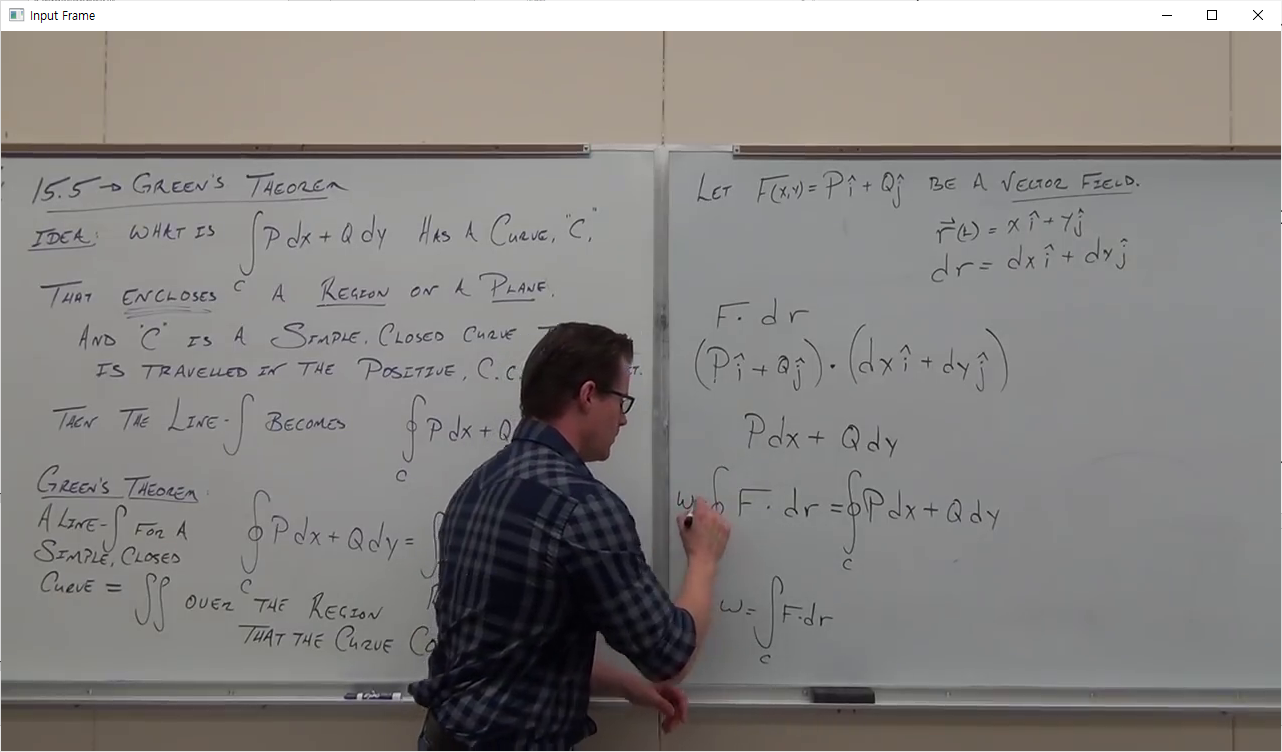 Input Frame
15.5 → GREEN'S THEOREM
IDEA: WHAT IS ∫ P dx + Q dy HAS A CURVE, "C",
C
THAT ENCLOSES A REGION ON A PLANE.
AND "C" IS A SIMPLE, CLOSED CURVE
IS TRAVELLED IN THE POSITIVE, C.C.
THEN THE LINE-∫ BECOMES ∮ P dx + Q
C
GREEN'S THEOREM:
A LINE-∫ FOR A
SIMPLE, CLOSED
CURVE = ∬ OVER THE REGION
THAT THE CURVE
∮ P dx + Q dy = ∫
C
LET F(x,y) = P î + Q ĵ BE A VECTOR FIELD.
r⃗(t) = x î + y ĵ
dr = dx î + dy ĵ
F · dr
(P î + Q ĵ) · (dx î + dy ĵ)
P dx + Q dy
W ∮ F · dr = ∮ P dx + Q dy
C
W = ∫ F · dr
C